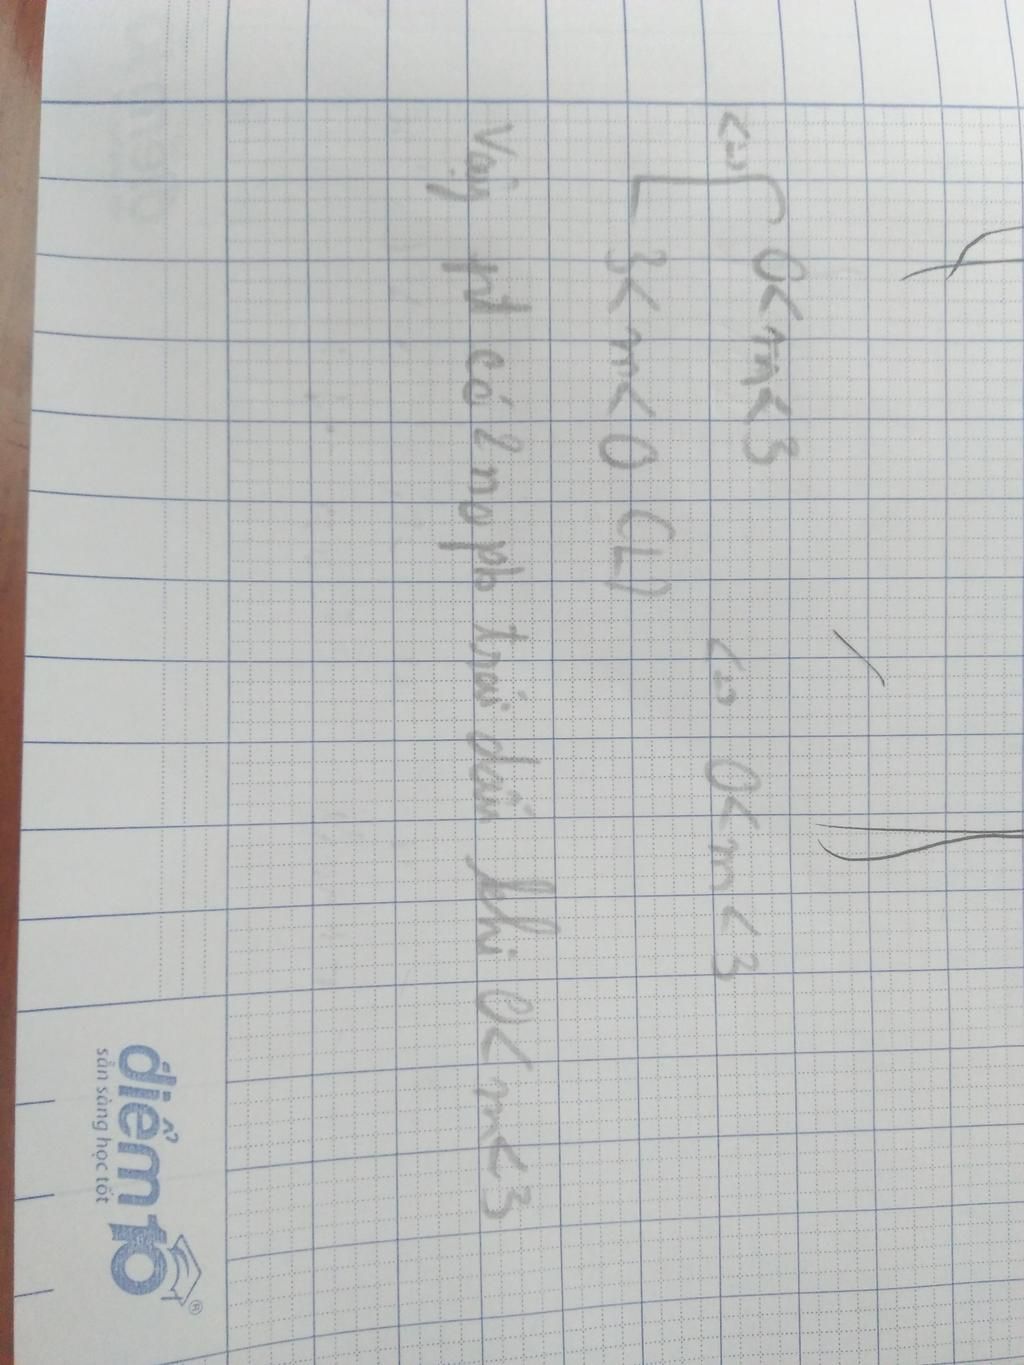 <=> [ 0 < m < 3
3 < m < 0 (L) <=> 0 < m < 3
Vậy pt có 2 no pb trái dấu khi 0 < m < 3
điểm 10 ®
sẵn sàng học tốt